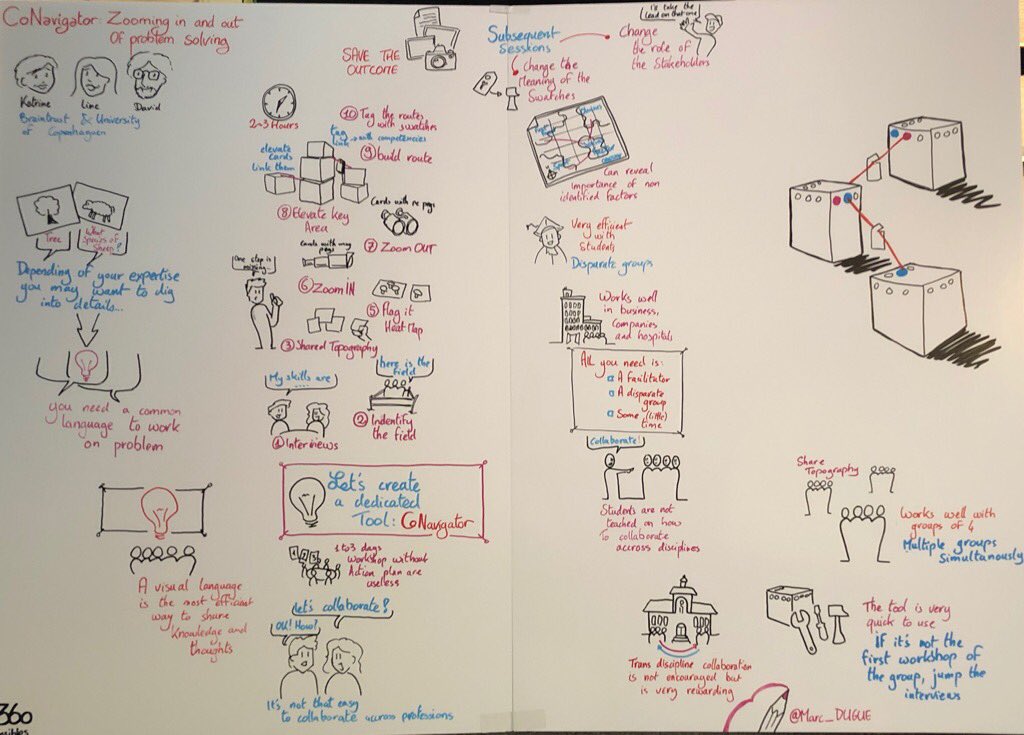 CoNavigator: Zooming in and out
Of problem solving
Katrine
Line
David
Braintrust & University
of Copenhaguen
Tree
What
Species of
Sheep?
Depending of your expertise
you may want to dig
into details...
you need a common
language to work
on problem
A visual language
is the most efficient
way to share
Knowledge and
thoughts
360
SAVE THE
OUTCOME
2-3 Hours
⑩ Tag the routes
with swatches
tag
link → with competencies
elevate
cards
link them
⑨ build route
⑧ Elevate key
Area
Cards with no pegs
⑦ Zoom OUT
Cards with many
pegs
One step is
missing...
⑥ Zoom IN
⑤ Flag it
Heat Map
③ Shared Topography
My skills are
....
here is the
field
② Indentify
the field
① Interviews
Let's create
a dedicated
Tool: CoNavigator
1 to 3 days
Workshop without
Action plan are
useless
Let's collaborate?
OK! How?
It's not that easy
to collaborate across professions
Subsequent
Sessions
I'll take the
lead on that one
Change
the role of
the Stakeholders
Change the
Meaning of the
Swatches
Can reveal
importance of non
identified factors
Very efficient
with
Students
Disparate groups
Works well
in business,
Companies
and hospitals
All you need is:
A facilitator
A disparate
group
Some (little)
time
Collaborate!
Students are not
teached on how
To collaborate
accross disciplines
Trans discipline collaboration
is not encouraged but
is very rewarding
Share
Topography
Works well with
groups of 4
Multiple groups
Simultanously
The tool is very
quick to use
If it's not the
first workshop of
the group, jump the
interviews
@Marc_DUGUE